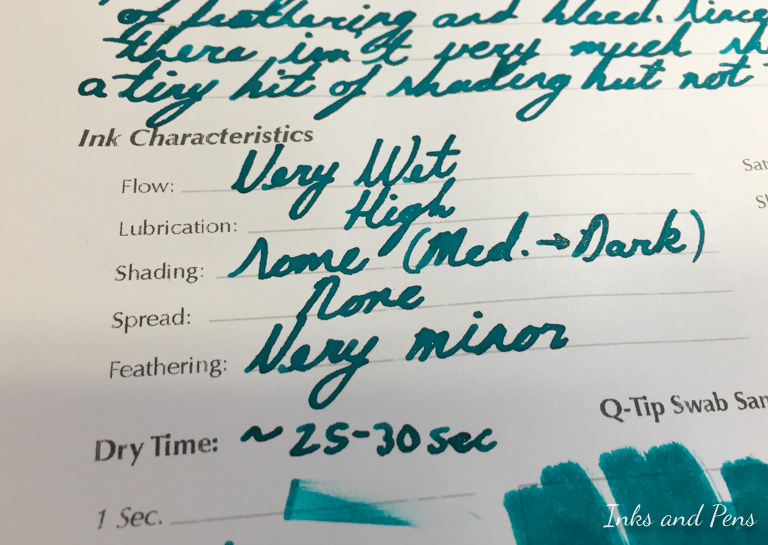 of feathering and bleed. Since
there isn't very much sh
a tiny bit of shading but not
Ink Characteristics
Flow: Very Wet
Sat
Lubrication: High
Sh
Shading: Some (Med. → Dark)
Spread: None
Feathering: Very minor
Q-Tip Swab Sam
Dry Time: ~ 25-30 sec
1 Sec.
Inks and Pens